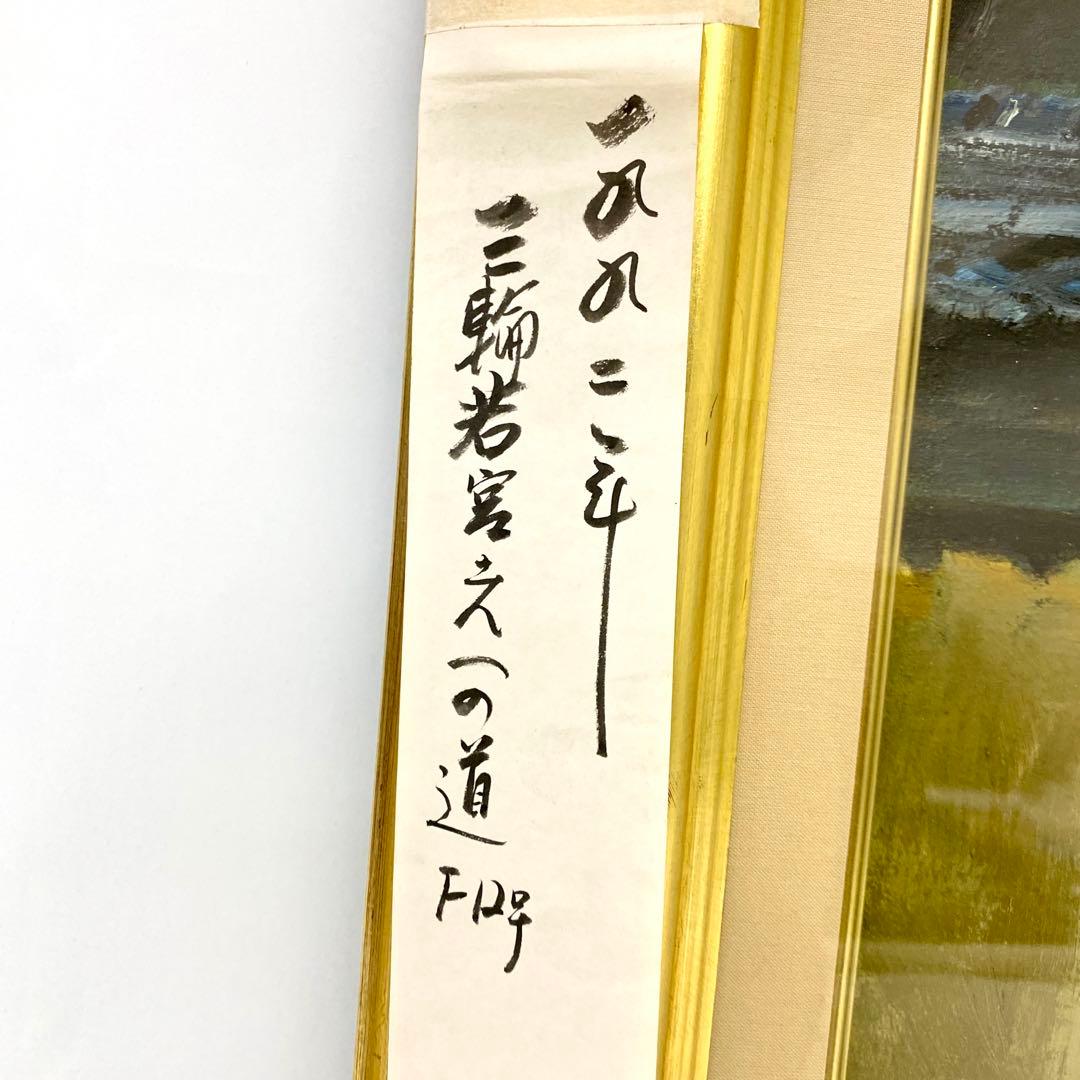 一九九二年
三輪若宮さんへの道 F12号